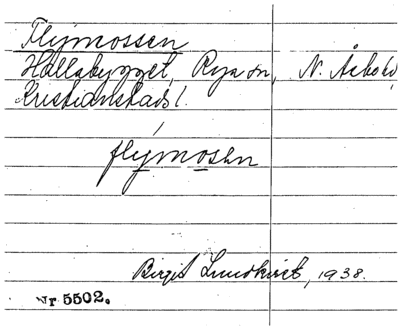 Flymossen
Hallabygget, Rya sn, N. Åsbo hd,
Kristianstads l.
flymosen
Birgit Lundkvist, 1938.
Nr 5502.